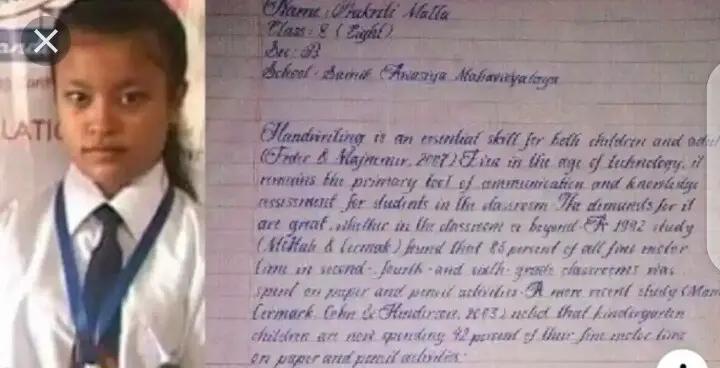 LATIO
Name : Prakriti Malla
Class : 8 (Eight)
Sec : B
School : Sainik Awasiya Mahavidyalaya
Handwriting is an essential skill for both children and adul
(Feder & Majnemer, 2007). Even in the age of technology, it
remains the primary tool of communication and knowledge
assessment for students in the classroom. The demands for it
are great, whether in the classroom or beyond. A 1992 study
(McHale & Cermak) found that 85 percent of all fine motor
time in second-, fourth- and sixth- grade classrooms was
spent on paper and pencil activities. A more recent study (Marr
Cermak, Cohn & Henderson, 2003) noted that kindergarten
children are now spending 42 percent of their fine motor time
on paper and pencil activities.